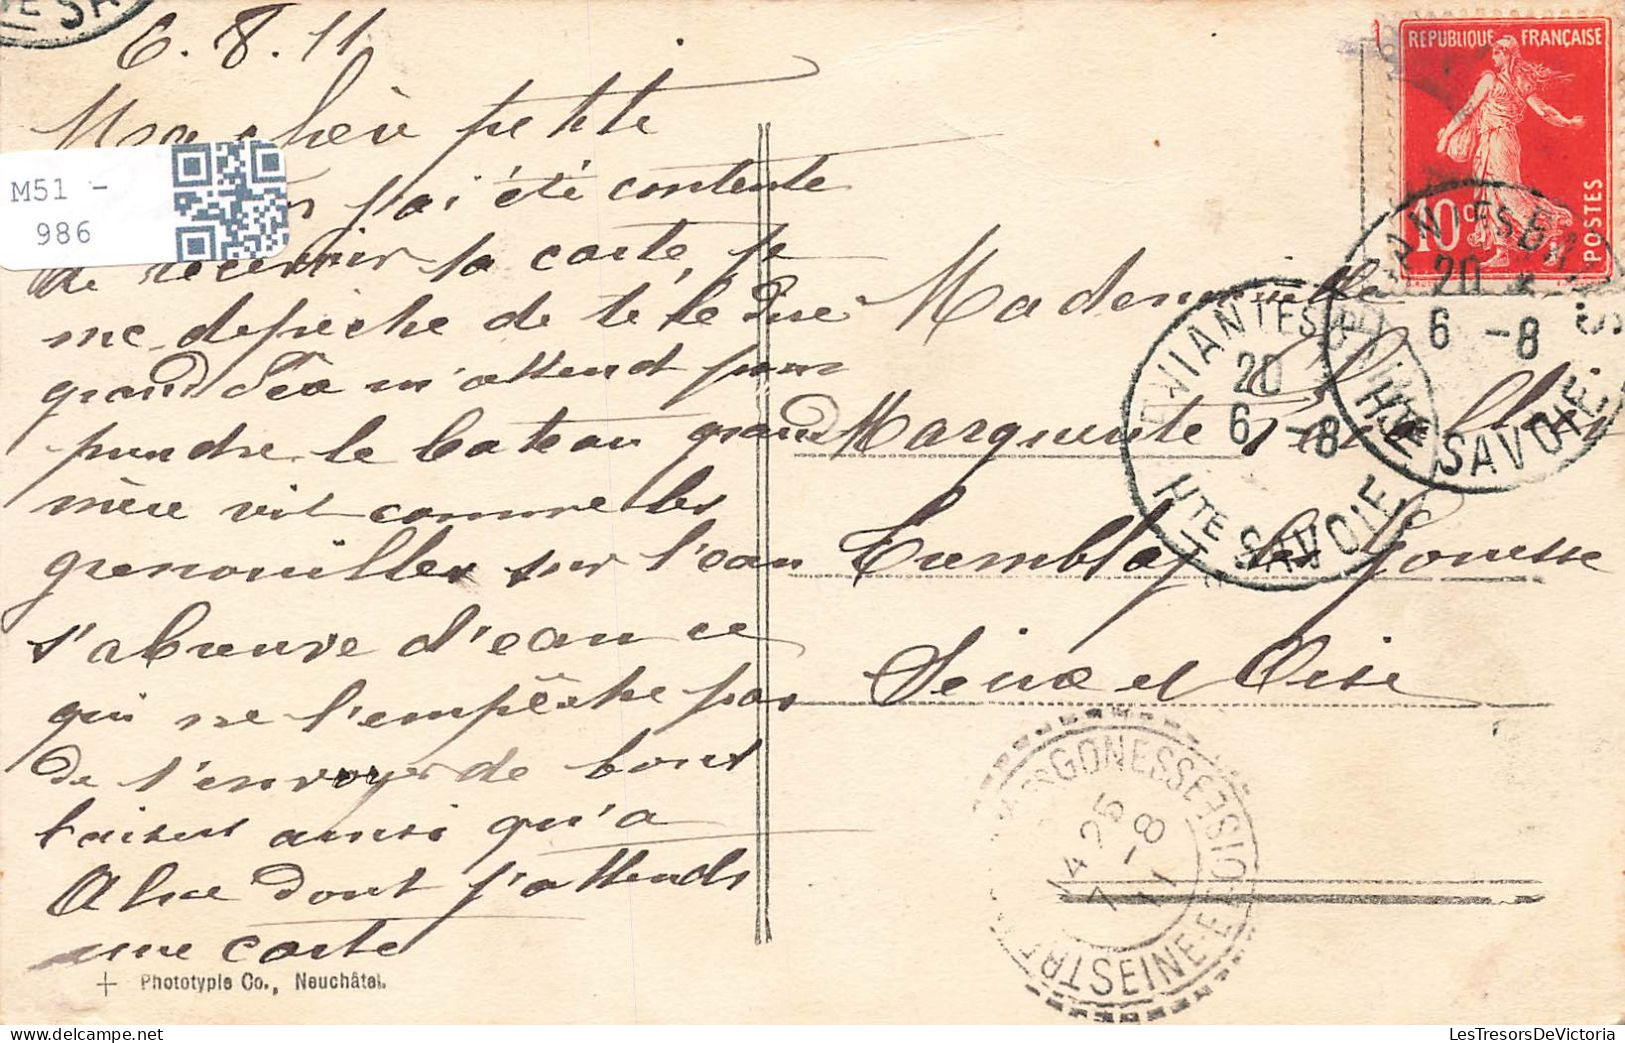 6.8.11
Ma chère petite
j'ai été contente
de recevoir ta carte, je
me dépêche de te le dire
grand Léa m'attend pour
prendre le bateau grand
mère vit comme les
grenouilles sur l'eau
s'abreuve d'eau ce
qui ne l'empêche pas
de t'envoyer de bons
baisers ainsi qu'a
Alice dont j'attends
une carte
Phototypie Co., Neuchâtel.
M51 -
986
REPUBLIQUE FRANÇAISE
10 c
POSTES
20
6 -8
Hte SAVOIE
20
6 -8
Hte SAVOIE
Mademoiselle
Marguerite
Tremblay les Gonesse
Seine et Oise
GONESSE
SEINE-ET-OISE
4 25
7 - 8
11
LesTresorsDeVictoria.com